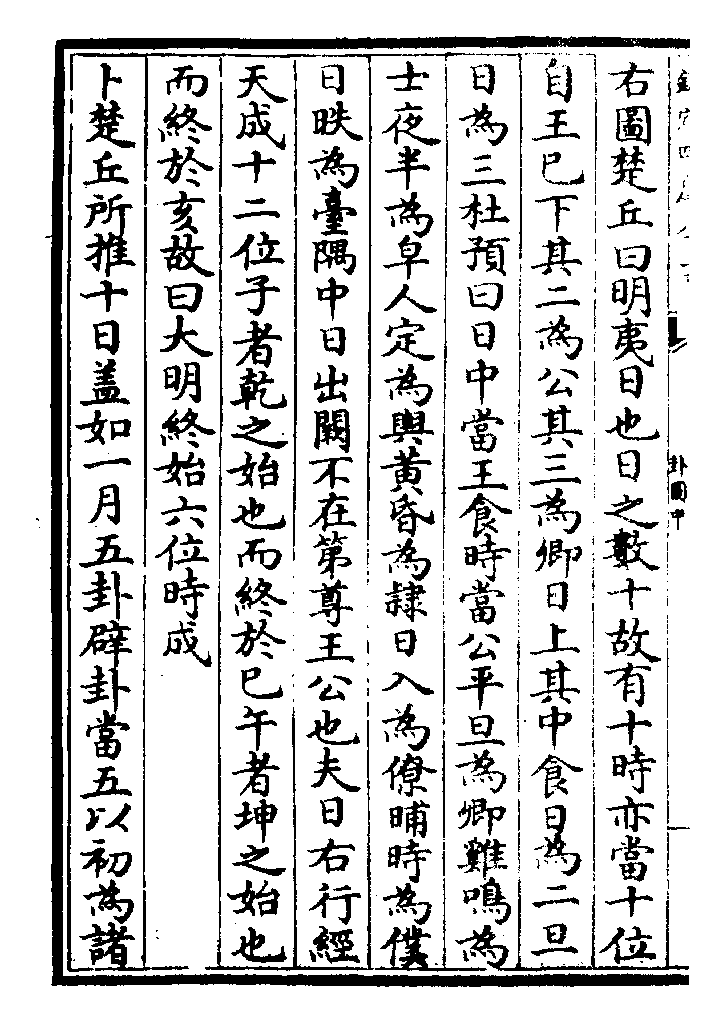 右圖楚丘曰明夷日也日之數十故有十時亦當十位
自王已下其二為公其三為卿日上其中食日為二旦
日為三杜預曰日中當王食時當公平旦為卿雞鳴為
士夜半為皁人定為輿黃昏為隸日入為僚晡時為僕
日昳為臺隅中日出闕不在第尊王公也夫日右行經
天成十二位子者乾之始也而終於巳午者坤之始也
而終於亥故曰大明終始六位時成
卜楚丘所推十日蓋如一月五卦辟卦當五以初為諸
卦圖中